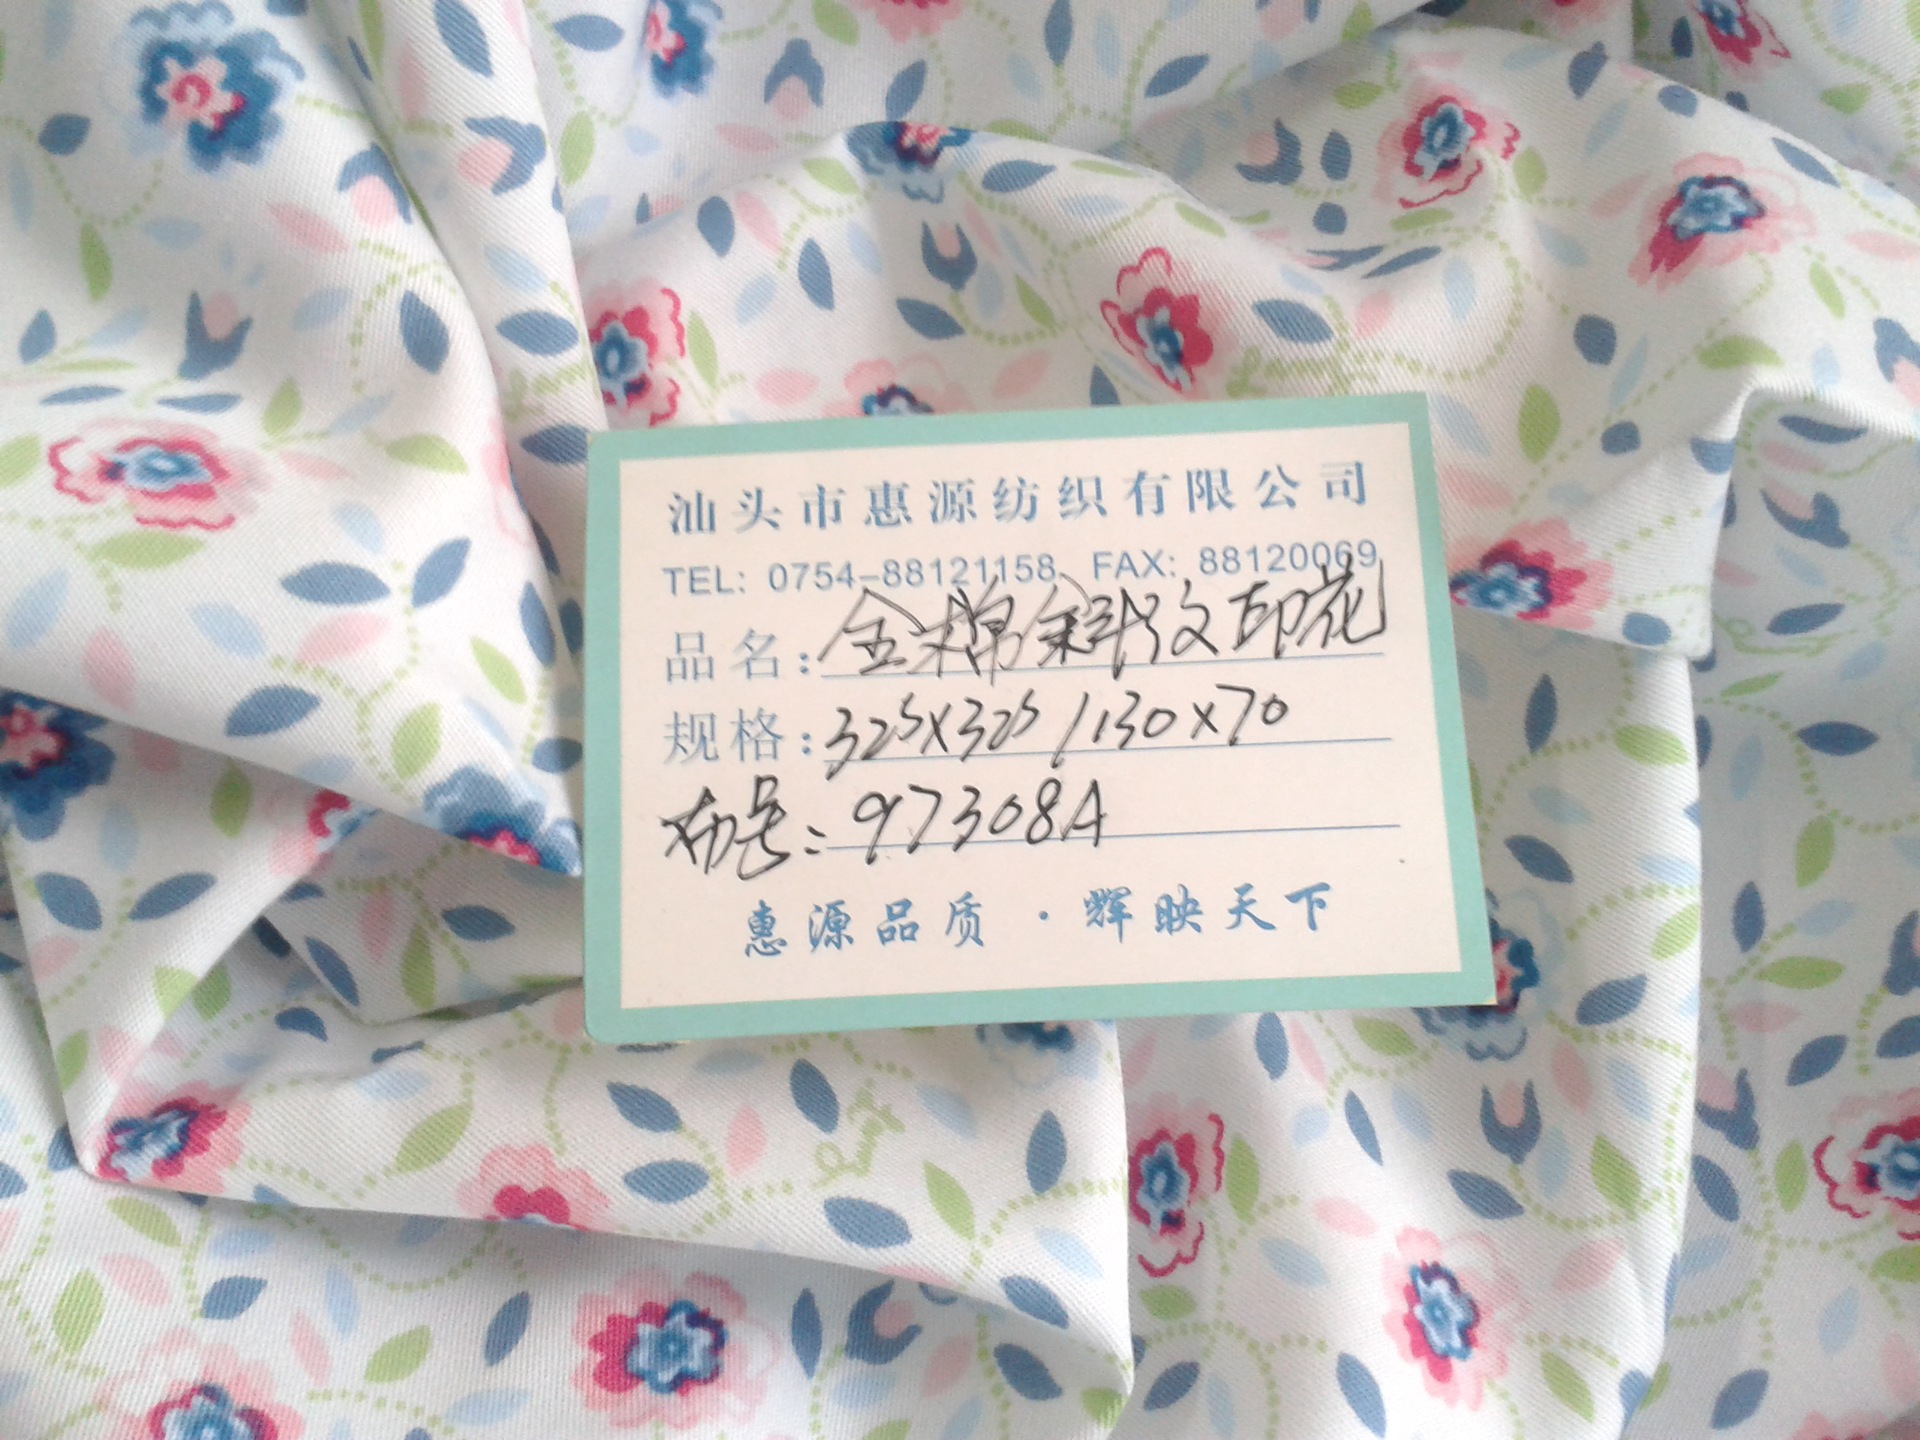 汕头市惠源纺织有限公司
TEL: 0754-88121158 FAX: 88120069
品名: 全棉斜纹印花
规格: 32s×32s/130×70
布号: 97308A
惠源品质·辉映天下